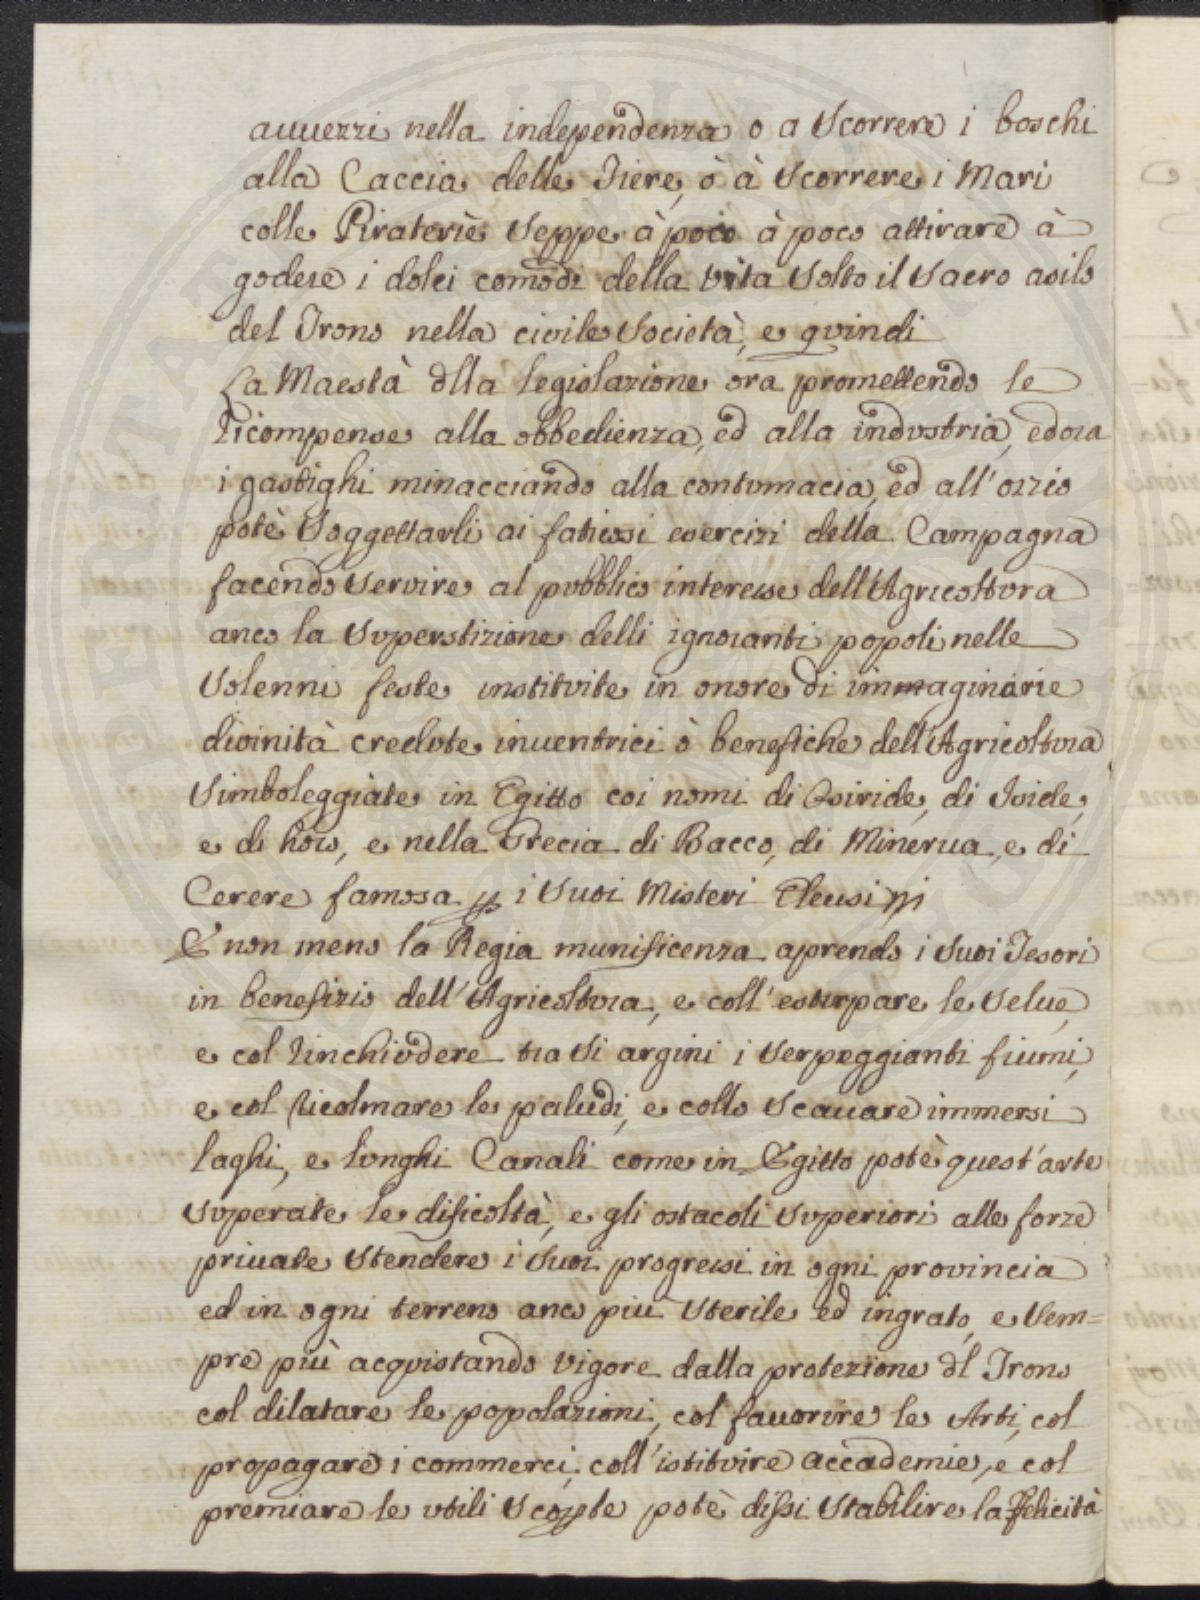 auuezzi nella independenza o a Scorrere i boschi
alla Caccia delle Fiere, ò à Scorrere i Mari
colle Piraterie Seppe à poco à poco attirare à
godere i dolci comodi della vita Sotto il Sacro asilo
del Trono nella civile Società, e quindi
La Maestà dlla legislazione ora promettendo le
Ricompense alla obbedienza, ed alla industria, edora
i gastighi minacciando alla contumacia, ed all'ozzio
potè Soggettarli ai faticosi esercizi della Campagna
facendo Servire al pubblico interesse dell'Agricoltura
anco la Superstizione delli ignoranti popoli nelle
Solenni feste instituite in onore di immaginarie
divinità credute inuentrici ò benefiche dell'Agricoltura
Simboleggiate in Egitto coi nomi di Osiride, di Iside,
e di horo, e nella Grecia di Bacco, di Minerua, e di
Cerere famosa p i Suoi Misteri Eleusini
E non meno la Regia munificenza aprendo i Suoi Tesori
in benefizio dell'Agricoltura, e coll'estirpare le Selue,
e col Rinchiudere tra Si argini i Serpeggianti fiumi,
e col Ricolmare le paludi, e collo Scauare immensi
laghi, e lunghi Canali come in Egitto potè quest'arte
Superate le dificoltà, e gli ostacoli Superiori alle forze
priuate Stendere i Suoi progressi in ogni provincia
ed in ogni terreno anco piu Sterile ed ingrato, e Sem=
pre più acquistando Vigore dalla protezione dl Trono
col dilatare le popolazioni, col fauorire le Arti, col
propagare i commerci, coll'istituire accademie, e col
premiare le utili Scoperte potè dissi Stabilire la Felicità